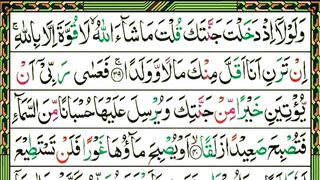 وَلَوْلَا اِذْ دَخَلْتَ جَنَّتَكَ قُلْتَ مَا شَآءَ اللّٰهُ لَا قُوَّةَ اِلَّا بِاللّٰهِ ۚ
اِنْ تَرَنِ اَنَا اَقَلَّ مِنْكَ مَالًا وَّوَلَدًا ۚ ﴿۳۹﴾ فَعَسٰى رَبِّیْۤ اَنْ
یُّؤْتِیَنِ خَیْرًا مِّنْ جَنَّتِكَ وَیُرْسِلَ عَلَیْهَا حُسْبَانًا مِّنَ السَّمَآءِ
فَتُصْبِحَ صَعِیْدًا زَلَقًا ۙ ﴿۴۰﴾ اَوْ یُصْبِحَ مَآؤُهَا غَوْرًا فَلَنْ تَسْتَطِیْعَ